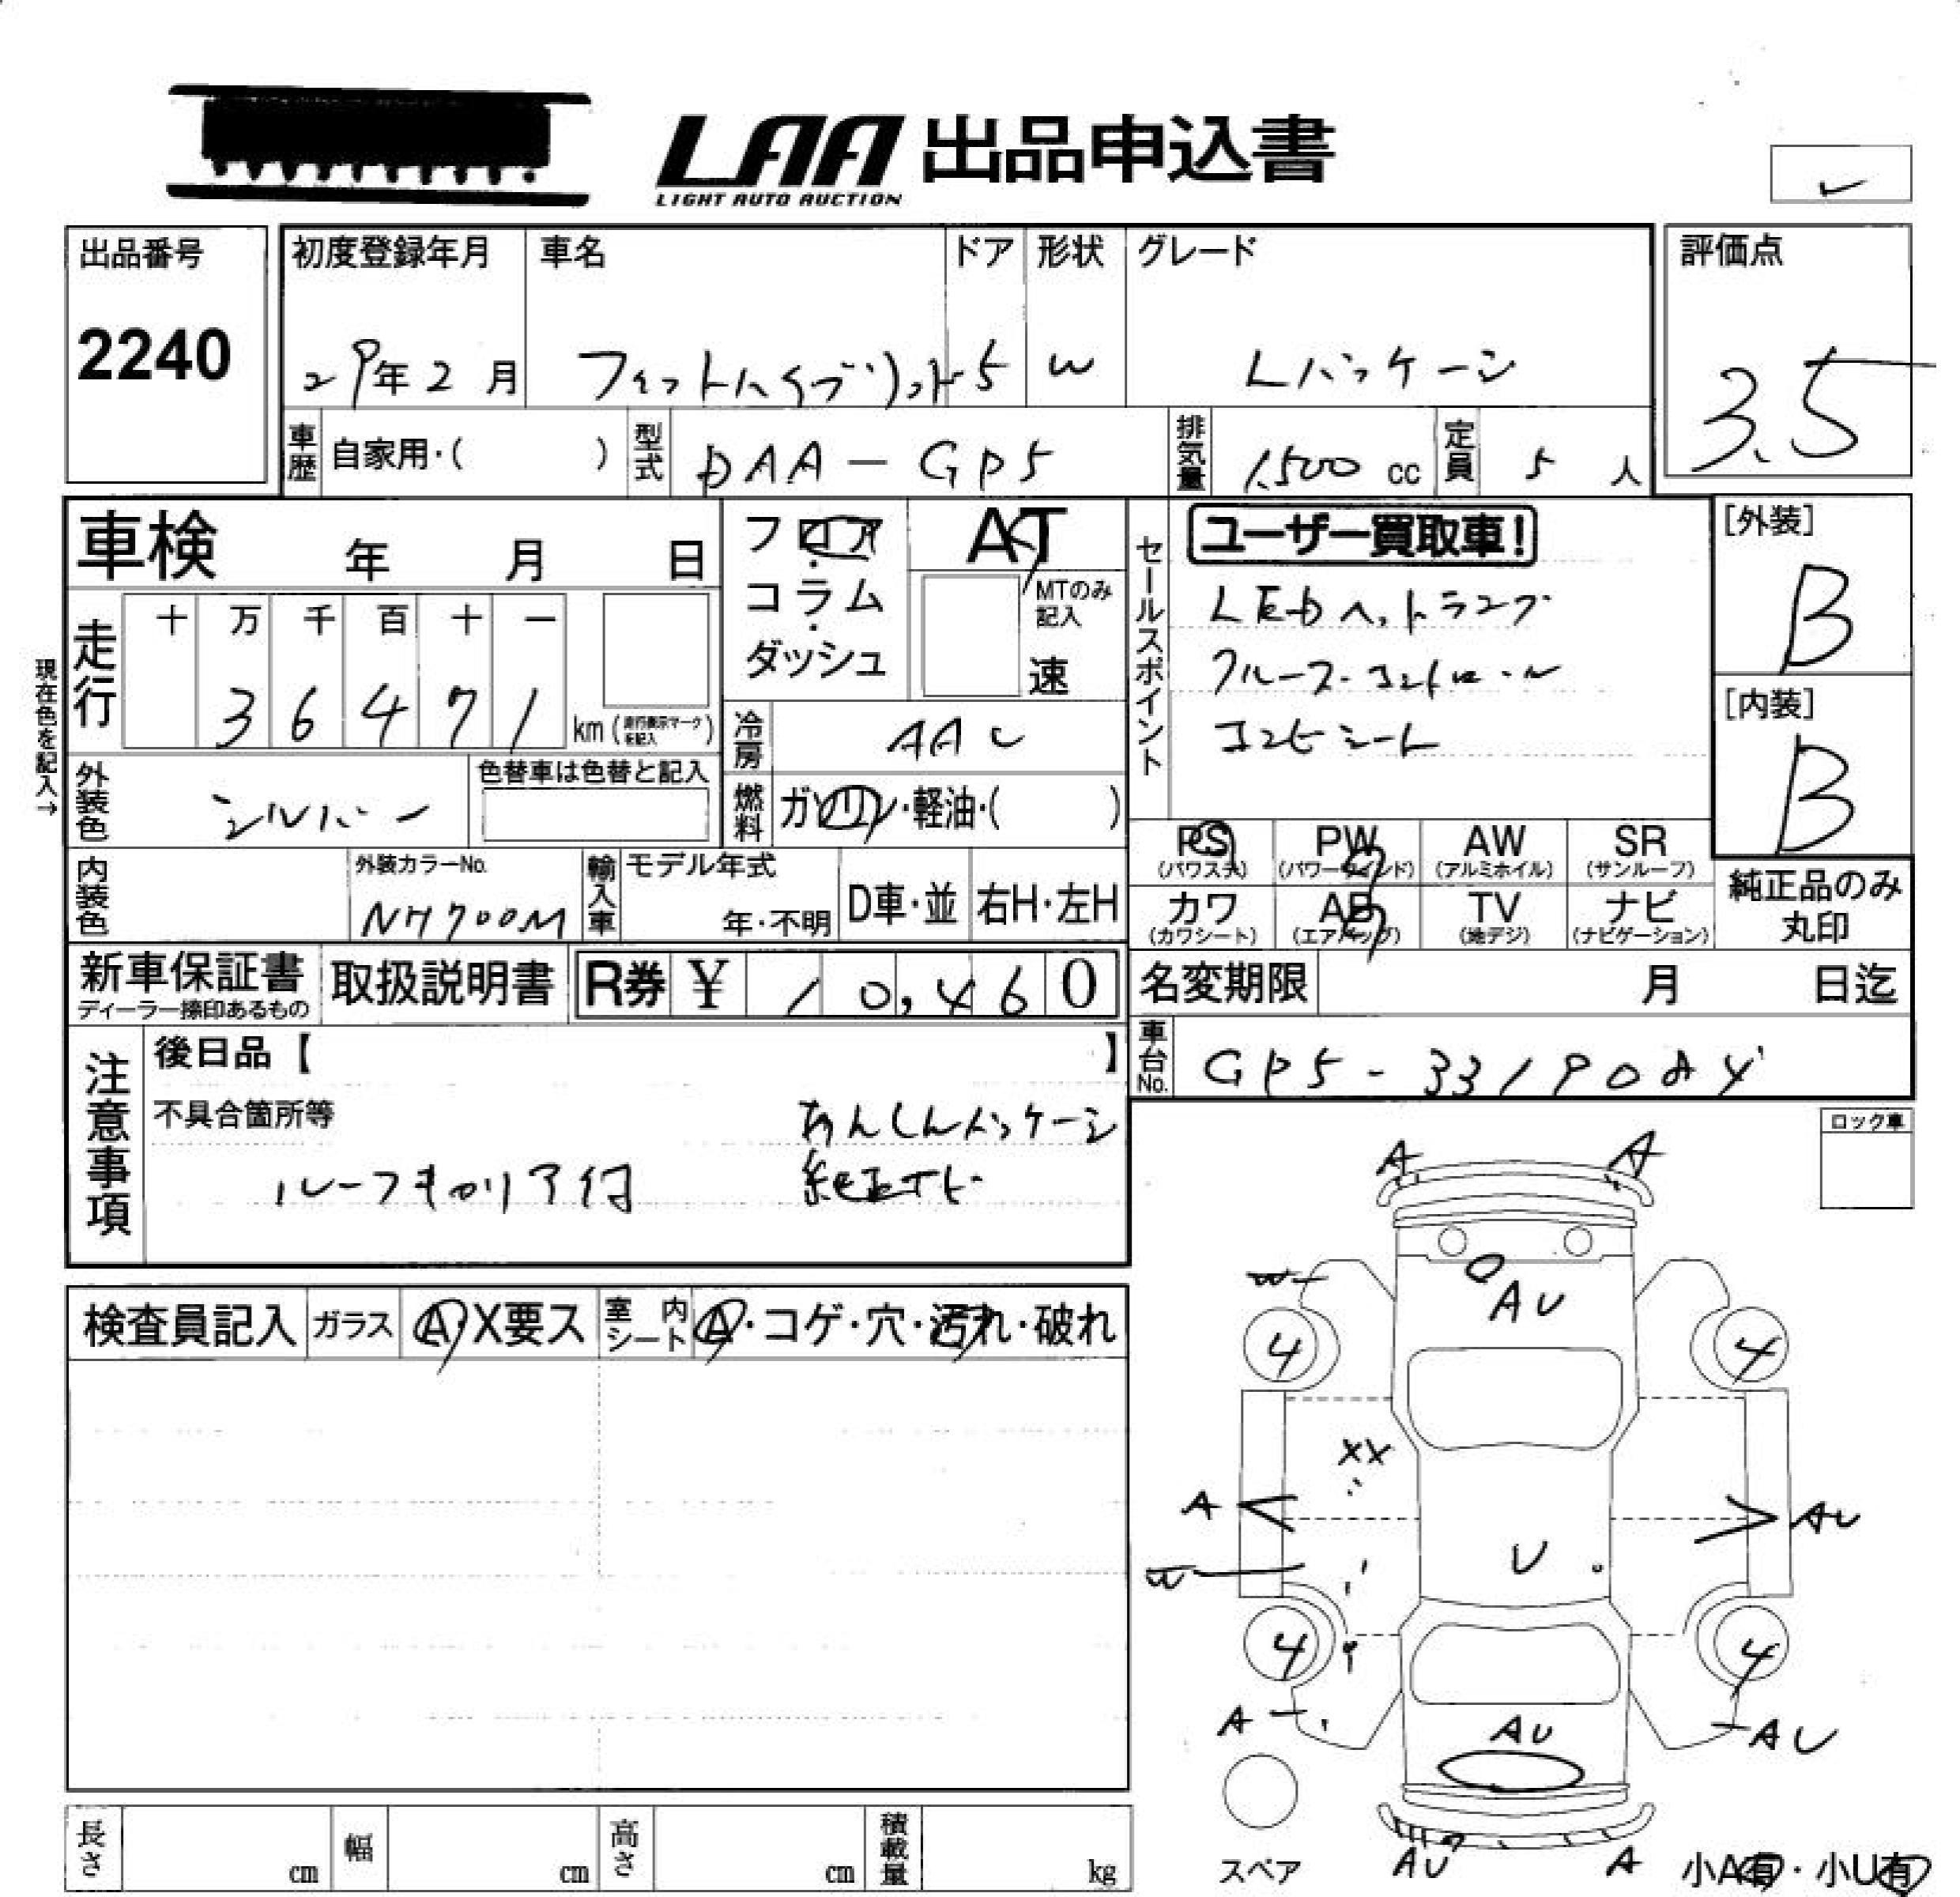 LAA 出品申込書
LIGHT AUTO AUCTION
出品番号
2240
初度登録年月
29年2月
車名
フィットハイブリット
ドア
5
形状
W
グレード
Lパッケージ
評価点
3.5
車歴
自家用・( )
型式
DAA-GP5
排気量
1,500 cc
定員
5 人
車検 年 月 日
フロア・コラム・ダッシュ
AT
MTのみ記入
速
セールスポイント
ユーザー買取車!
LEDヘットランプ
クルーズ・コントロール
コンビシート
[外装]
B
[内装]
B
現在色を記入→
走行
十 万 千 百 十 一
3 6 4 7 1
km (走行表示マークを記入)
冷房
AAC
外装色
シルバー
色替車は色替と記入
燃料
ガソリン・軽油・( )
PS (パワステ)
PW (パワーウインド)
AW (アルミホイル)
SR (サンルーフ)
カワ (カワシート)
AB (エアバッグ)
TV (地デジ)
ナビ (ナビゲーション)
純正品のみ丸印
内装色
外装カラーNo.
NH700M
輸入車
モデル年式
年・不明
D車・並
右H・左H
新車保証書
ディーラー捺印あるもの
取扱説明書
R券 ¥ 10,460
名変期限 月 日迄
車台No.
注意事項
後日品【 】
不具合箇所等
あんしんパッケージ
ルーフキャリア付
ロック車
検査員記入
ガラス
A・X要ス
室内シート
A・コゲ・穴・汚れ・破れ
A A
AU
W
4 4
XX
A AU
W U
4 4
A AU AU
スペア
AU A
小A有・小U有
長さ cm
幅 cm
高さ cm
積載量 kg